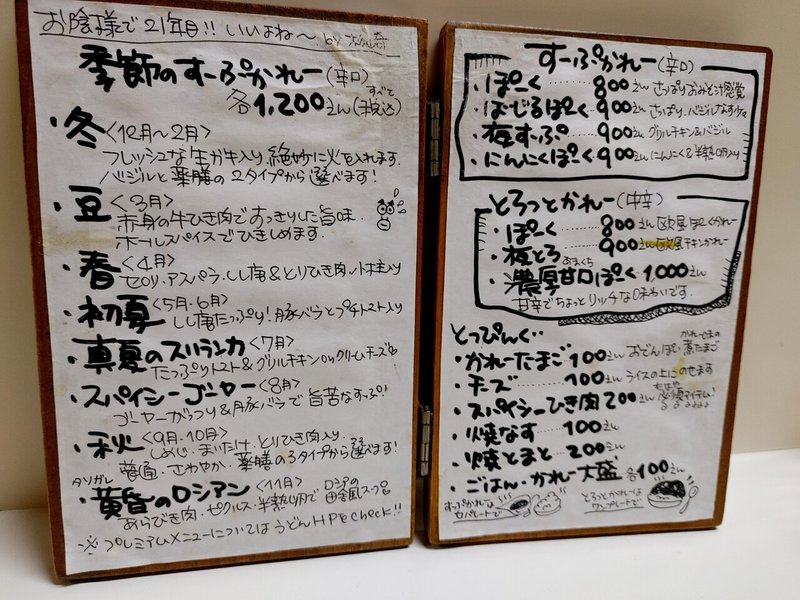 お陰様で21年目!! いいよね〜 by
季節のすーぷかれー(辛口)
各1,200えん(税込)
すべて
・冬<12月〜2月>
フレッシュな生ガキ入り。絶妙に火を入れます。
バジルと薬膳の2タイプから選べます!
・豆<3月>
赤身の牛ひき肉ですっきりした旨味。
ホールスパイスでひきしめます。
・春<4月>
セロリ・アスパラ・しし唐&とりひき肉・小柱入り
・初夏<5月・6月>
しし唐たっぷり!豚バラとプチトマト入り
・真夏のスリランカ<7月>
たっぷりトマト&グリルチキン on クリームチーズ
・スパイシーゴーヤー<8月>
ゴーヤーがっつり&豚バラで旨苦なすーぷ!
・秋<9月・10月>
しめじ・まいたけ・とりひき肉入り。
普通・さわやか・薬膳の3タイプから選べます!
タソガレ
・黄昏のロシアン<11月>
ロシアの田舎風スープ
あらびき肉・ピクルス・半熟卵で
※プレミアムメニューについては うどんHPをcheck!!
すーぷかれー(辛口)
・ぽーく……800えん さっぱりおみそ汁感覚
・ばじるぽーく 900えん さっぱり。バジルなす
・夜すーぷ……900えん グリルチキン&バジル
・にんにくぽーく 900えん にんにく&半熟卵入り
とろっとかれー(中辛)
・ぽーく……800えん 欧風ぽーくかれー
・夜とろ……900えん 欧風チキンかれー
あまくち
・濃厚甘口ぽーく 1,000えん
甘辛でちょっとリッチな味わいです。
とっぴんぐ
・かれーたまご 100えん おでんぽい かれー味の煮たまご
・チーズ……100えん ライスの上にのせます
・スパイシーひき肉 200えん もはや必須アイテム!
・焼なす……100えん
・焼とまと……200えん
・ごはん・かれー大盛 各100えん
すーぷかれーは
セパレートで
とろっとかれーは
ワンプレートで